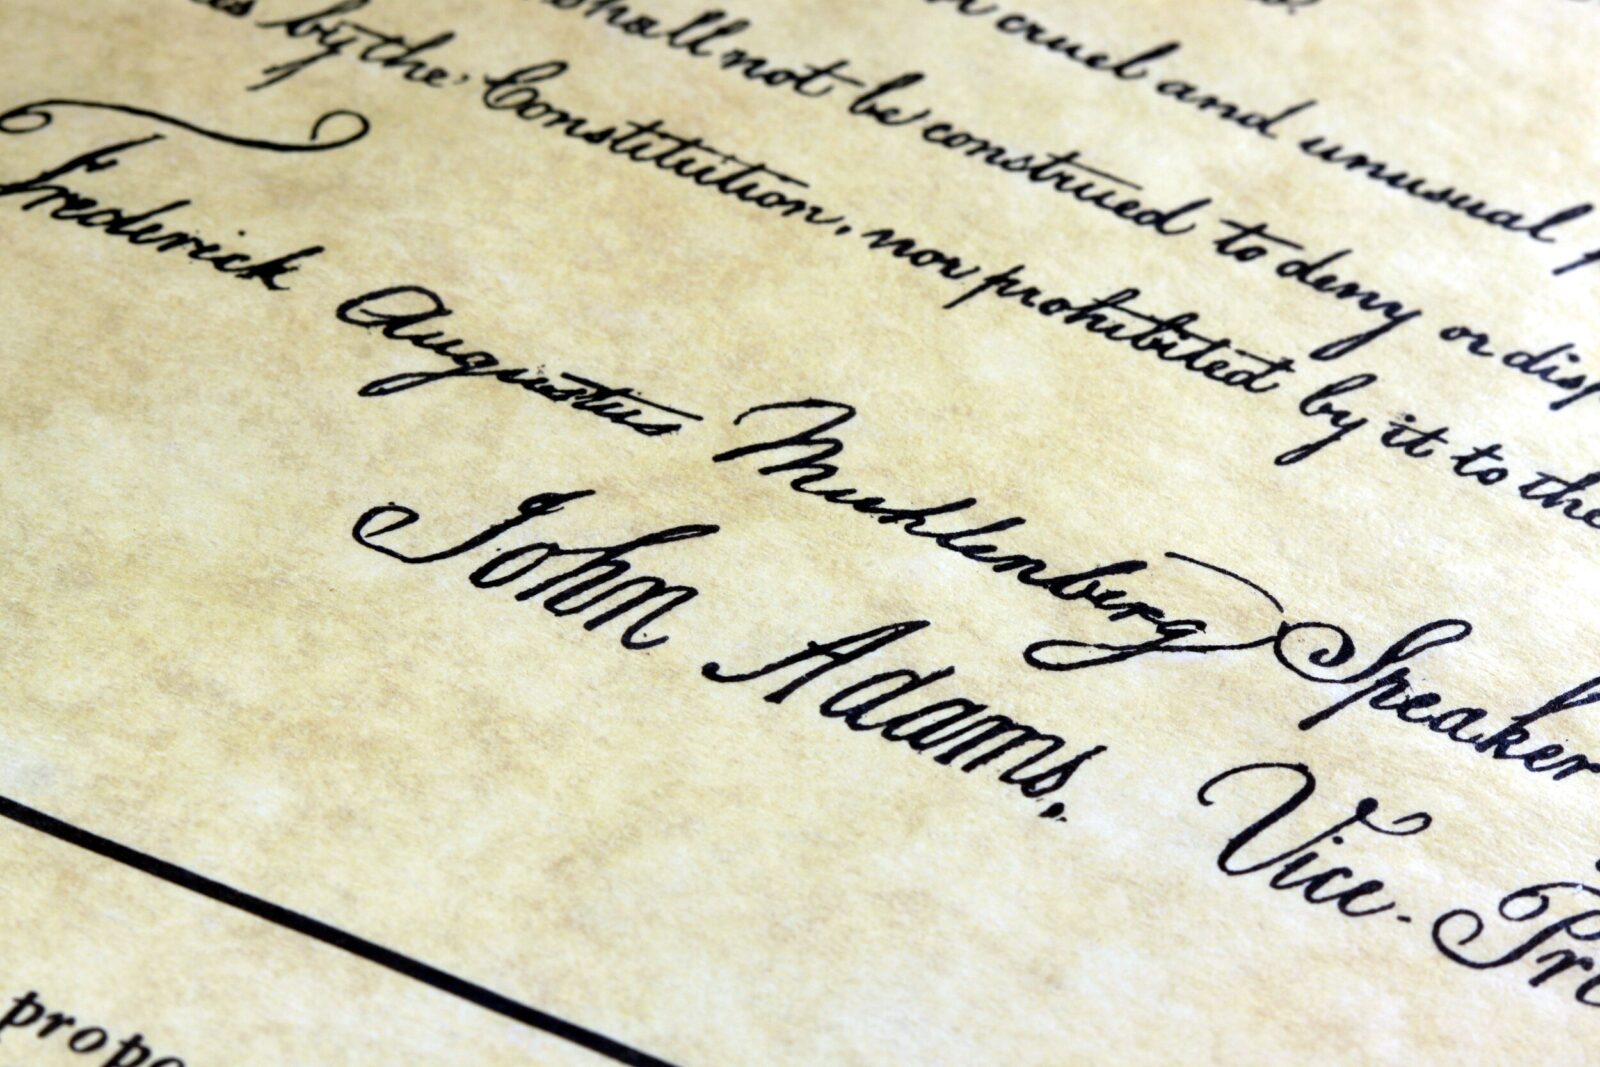 cruel and unusual
shall not be construed to deny or
by the Constitution, nor prohibited by it to the
Frederick Augustus Muhlenberg Speaker
John Adams, Vice-